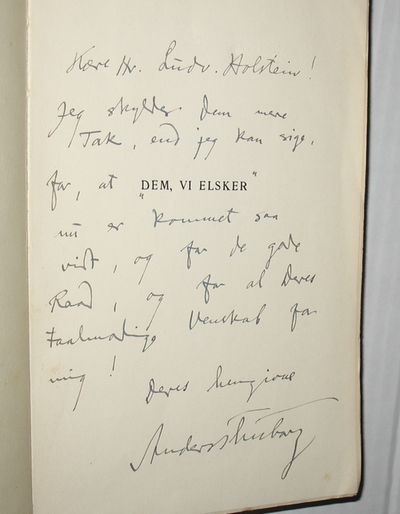 Kære Hr. Ludv. Holstein!
Jeg skylder Dem mere
Tak, end jeg kan sige,
for, at "DEM, VI ELSKER"
nu er kommet saa
vidt, og for de gode
Raad, og for al Deres
taalmodige Venskab for
mig!
Deres hengivne
Anders Thuborg